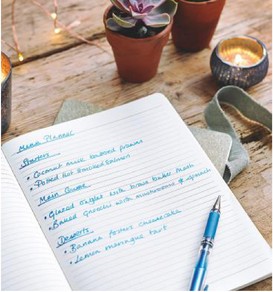 Menu Planner
Starters
• Coconut milk braised prawns
• Potted hot smoked salmon
Main Course
• Glazed with mash
• Baked gnocchi with mushrooms & spinach
Desserts
• Banana fosters cheesecake
• Lemon meringue tart